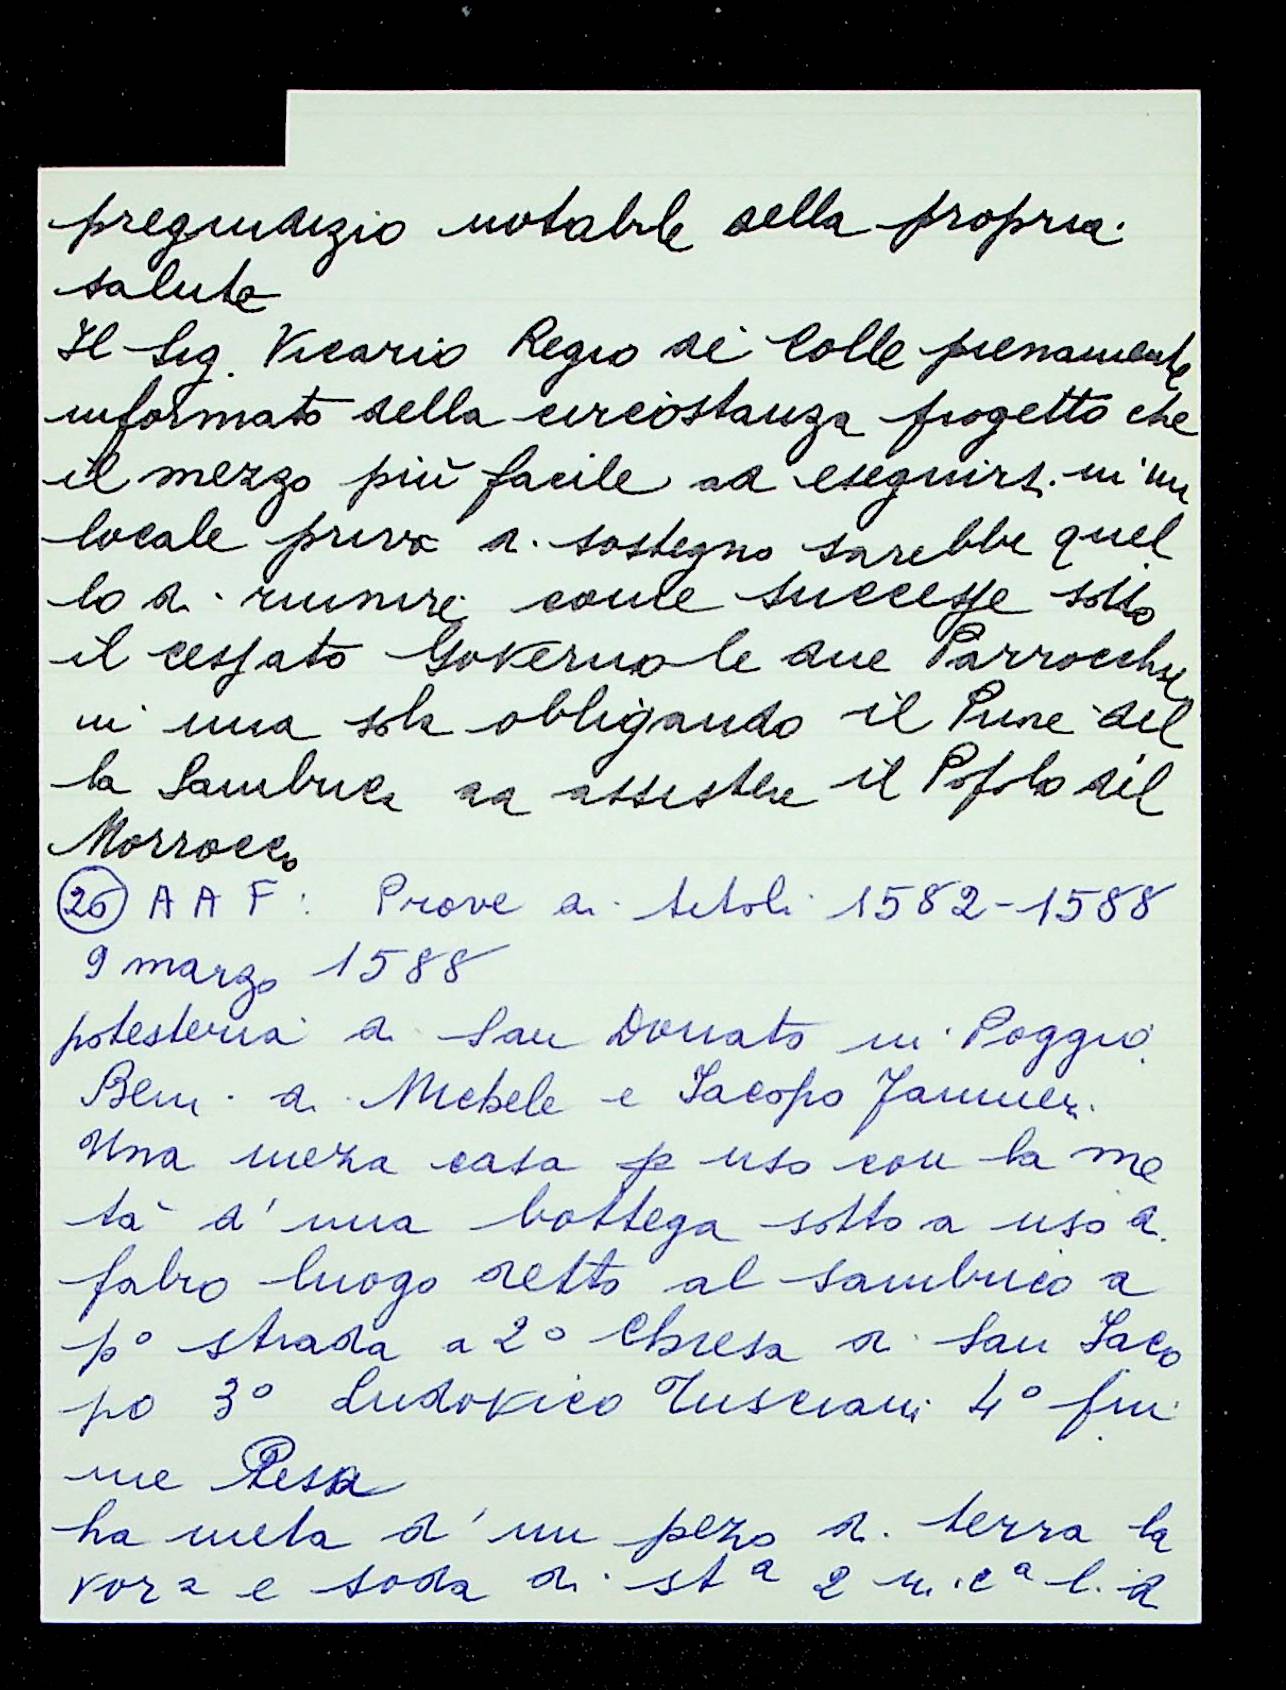 pregiudizio notabile della propria
salute
Il Sig. Vicario Regio di Colle pienamente
informato della circostanza progettò che
il mezzo più facile ad eseguirsi in un
locale privo di sostegno sarebbe quel
lo di riunire come successe sotto
il cessato Governo le due Parrocchie
in una sola obbligando il Piev. del
la Sambuca ad assistere il Popolo del
Morrocco
26 A A F: Prove di titoli 1582-1588
9 marzo 1588
potesteria di San Donato in Poggio
Beni di Michele e Iacopo
Una meza casa p uso con la me
tà d'una bottega sotto a uso di
fabro luogo detto al sambuco a
p° strada a 2° Chiesa di San Iaco
po 3° Ludovico Tusciani 4° fiu
me Pesa
ha meta d'un pezo di terra la
vora e soda di st a 2 in c a l. d